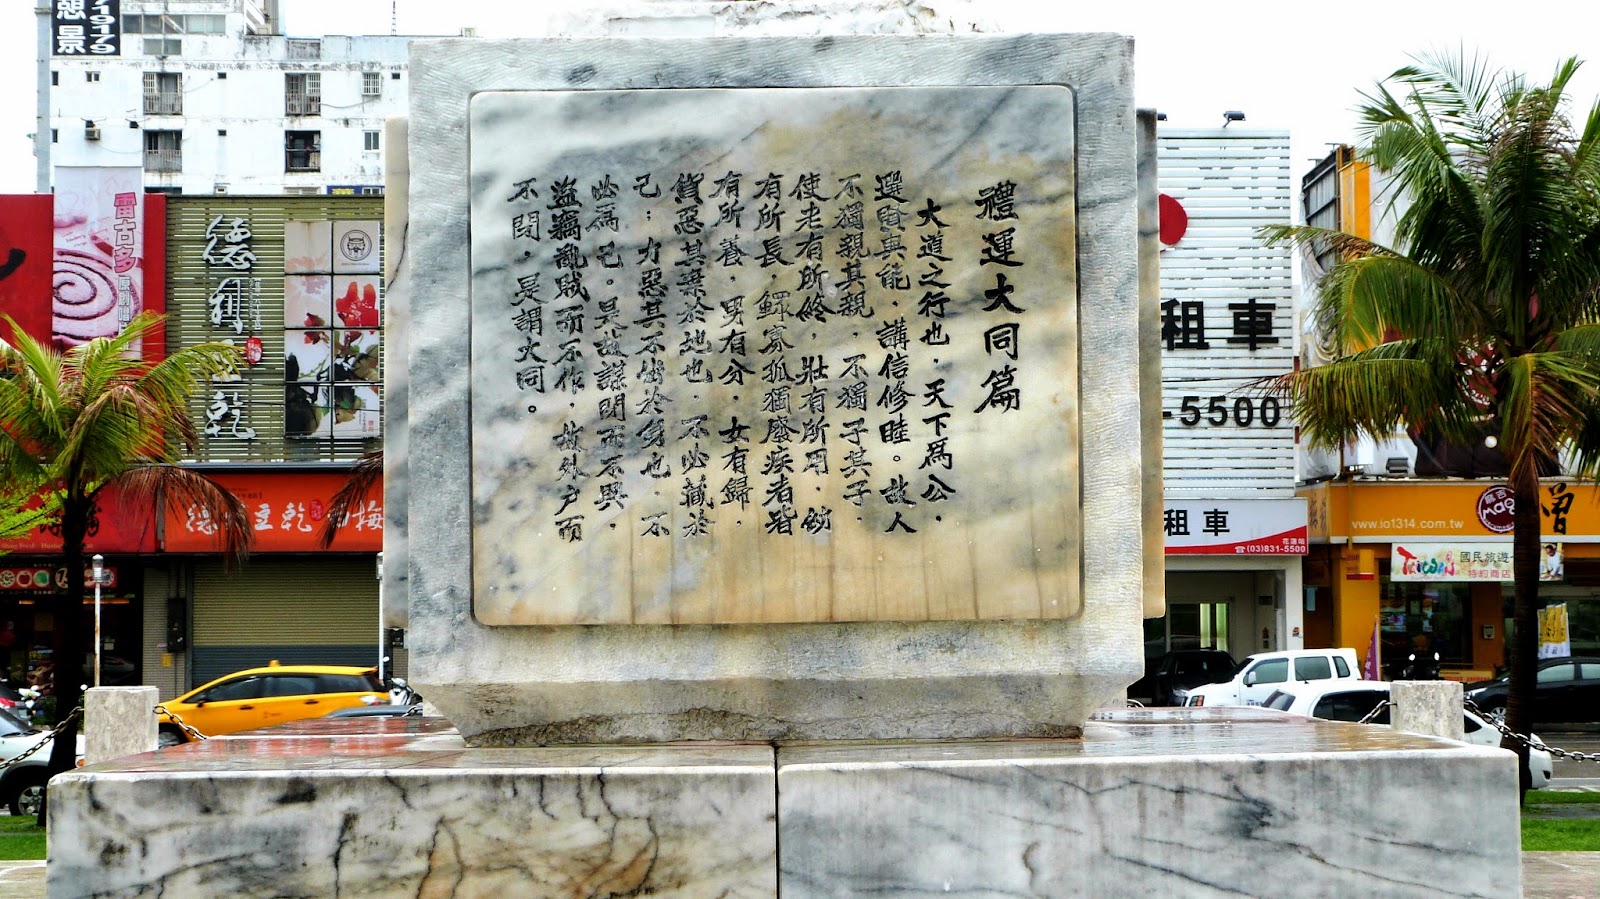 禮運大同篇
大道之行也，天下為公，
選賢與能，講信修睦。故人
不獨親其親，不獨子其子，
使老有所終，壯有所用，幼
有所長，鰥寡孤獨廢疾者皆
有所養，男有分，女有歸，
貨惡其棄於地也，不必藏於
己；力惡其不出於身也，不
必為己。是故謀閉而不興，
盜竊亂賊而不作，故外戶而
不閉，是謂大同。
憩景
719179
雷古多
原創
租車
-5500
租車
花蓮站
☎(03)831-5500
www.io1314.com.tw
麻吉
Maji
曾
Taiwan
國民旅遊
特約商店